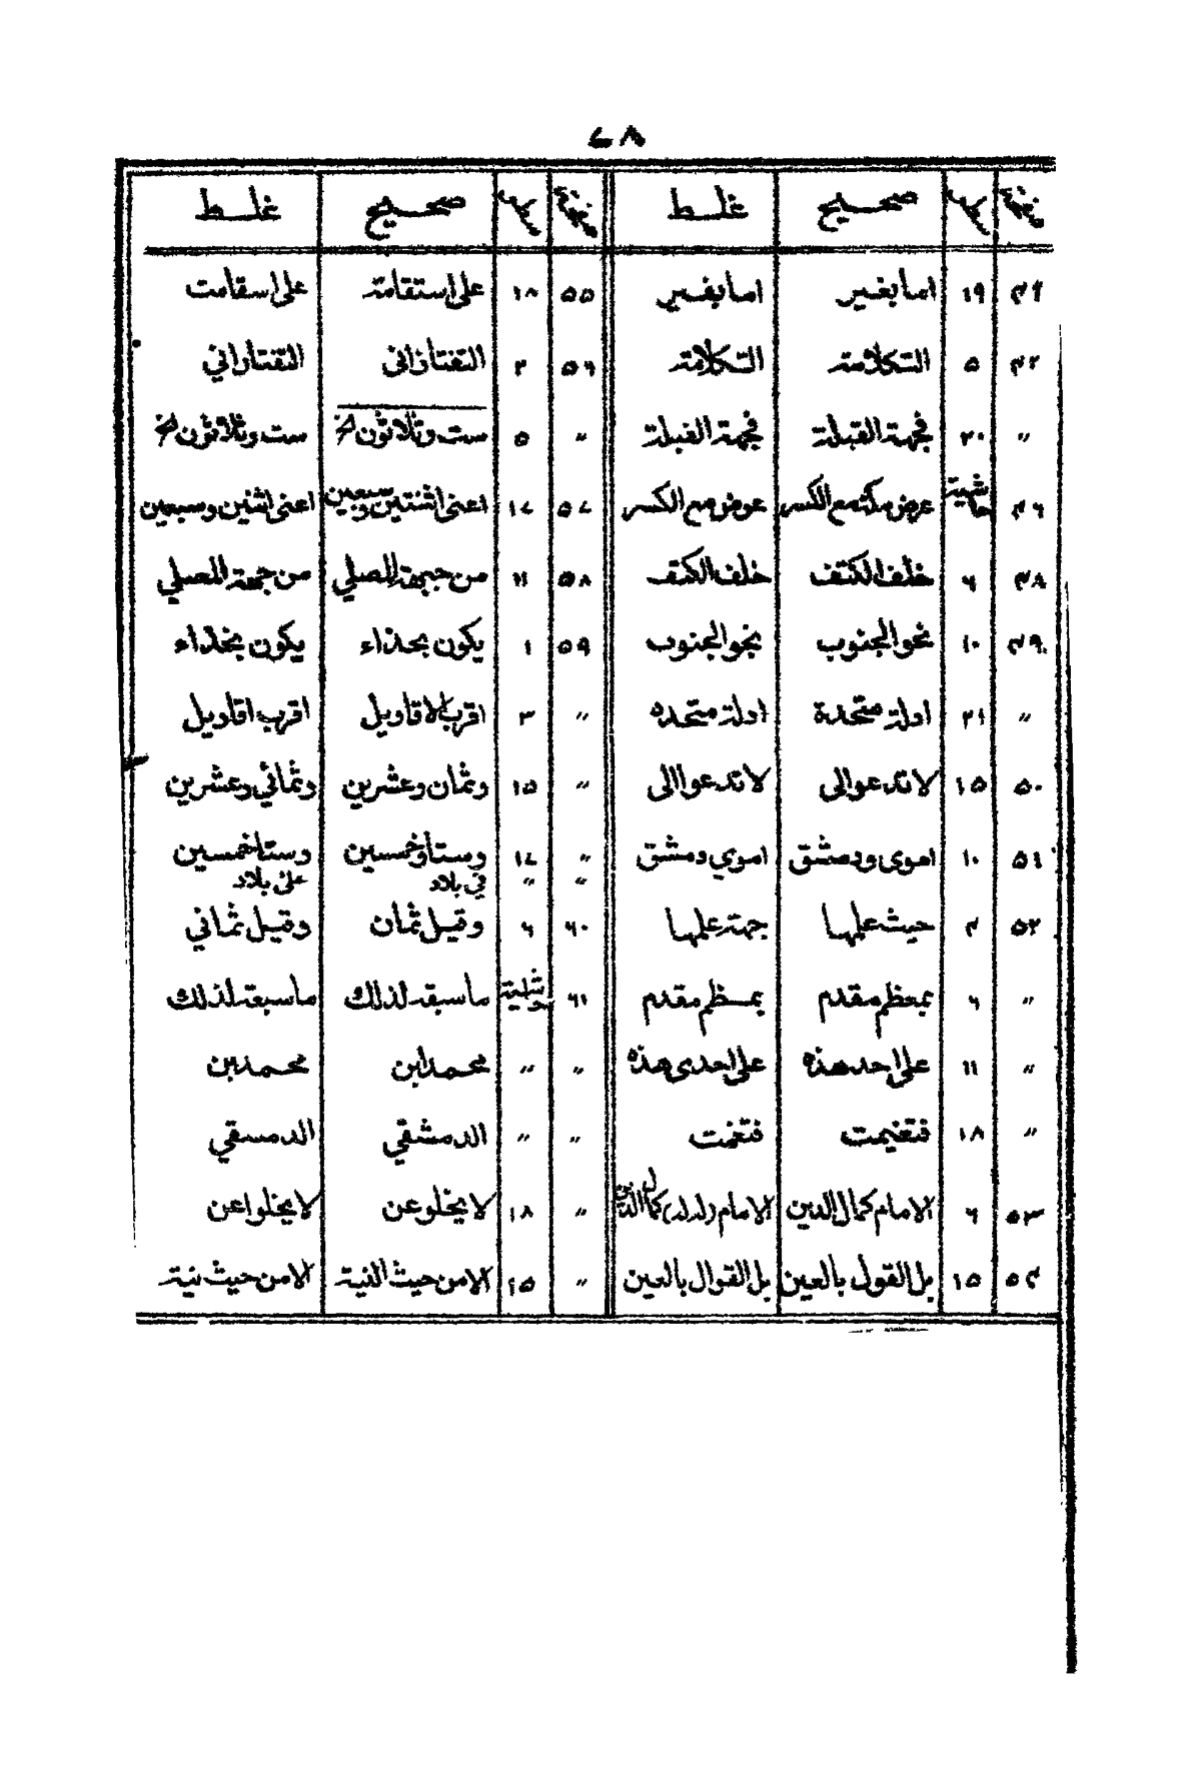 ٦٨
صفحة سطر صحيح غلط صفحة سطر صحيح غلط
٤٢ ١٩ اما بغير اما بفير ٥٥ ١٨ على استقامة على اسقامت
٤٣ ٥ التكلامة التكلامة ٥٦ ٢ التفتازانى التقتاراني
〃 ٢٠ فجهة القبلة فجهة الفبلة 〃 ٥ ست وثلاثون الخ ست وثلاثون الخ
٤٦ حاشية عرض مكة مع الكسر عوض مع الكسر ٥٧ ١٧ اعنى اثنتين وسبعين اعنى اثنين وسبعين
٤٨ ٦ خلف الكتف خلف الكنف ٥٨ ١١ من جبهة المصلي من جهة المصلي
٤٩ ١٠ نحو الجنوب نجو الجنوب ٥٩ ١ يكون بحذاء يكون بخذاء
〃 ٢١ ادلة متحدة ادلة متحده 〃 ٣ اقرب الاقاويل اقرب اقاويل
٥٠ ١٥ لا تدعو الى لا تدعوا الى 〃 ١٥ وثمان وعشرين وثمانى وعشرين
٥١ ١٠ اموى ودمشق اموي ومشق 〃 ١٧ وستا وخمسين وستا خمسين
〃 〃 في بلاد على بلاد
٥٢ ٤ حيث عليها جهة عليها ٦٠ ٦ وقيل ثمان وقيل ثماني
〃 ٦ بمعظم مقدم بمسظم مقدم ٦١ حاشية ما سبقه لذلك ما سبعة لذلك
〃 ١١ على احد هذه على احدى هذه 〃 〃 محمد ابن محمد بن
〃 ١٨ فتغيمت فتغمت 〃 〃 الدمشقي الدمسقي
٥٣ ٦ الامام كمال الدين الامام كمال الدين 〃 ١٨ لا يخلو عن لا يخلوا عن
٥٤ ١٥ بل القول بالعين بل القوال بالعين 〃 ١٥ الا من حيث النية الا من حيث نية